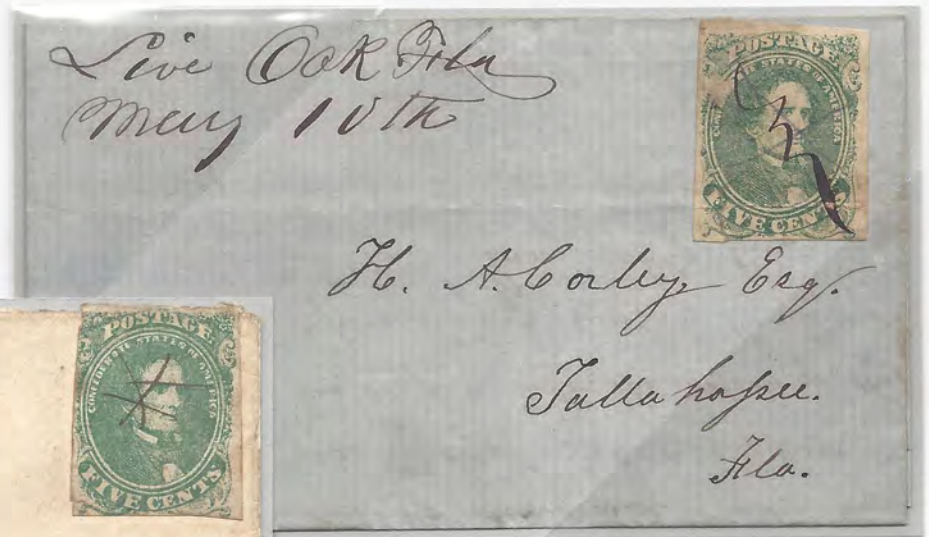 Live Oak Fla
May 10th
POSTAGE
CONFEDERATE STATES OF AMERICA
FIVE CENTS
H. A. Corley Esq.
Tallahassee.
Fla.
POSTAGE
CONFEDERATE STATES OF AMERICA
FIVE CENTS